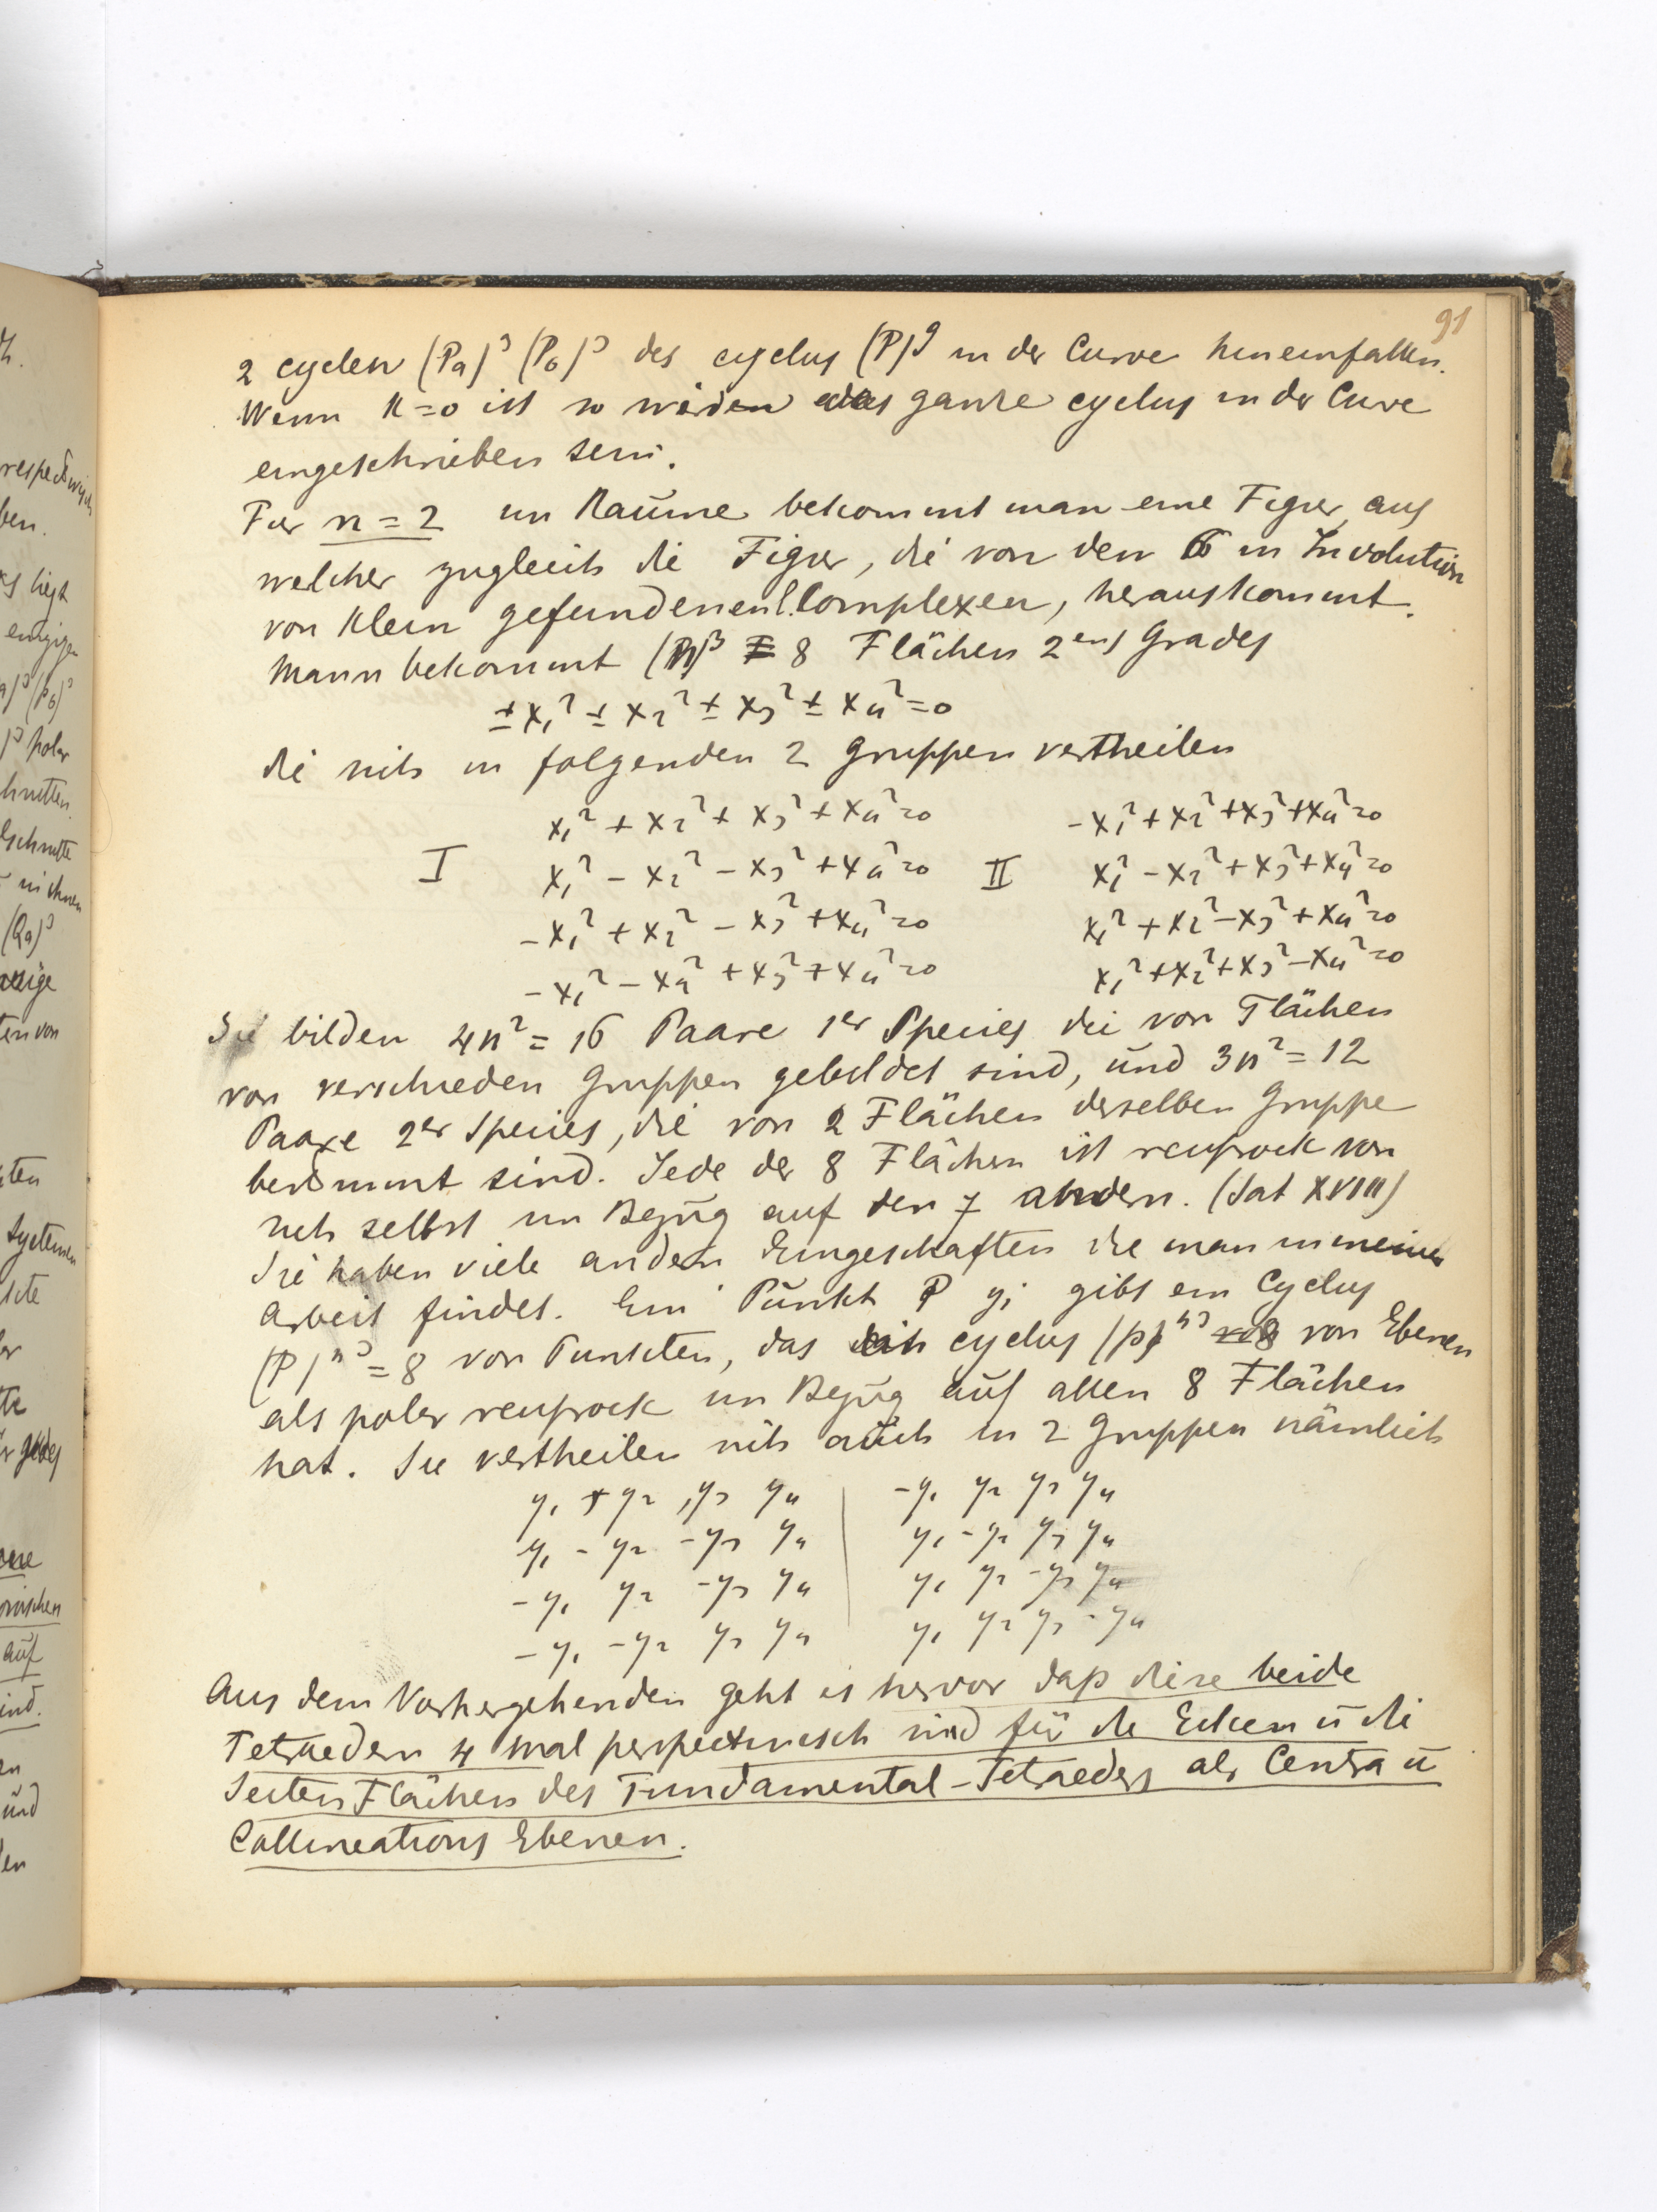 91
2 cyclen (Pa)³ (Pb)³ des cyclus (P)⁹ in der Curve hineinfallen.
Wenn K=0 ist so werden das ganze cyclus in der Curve
eingeschrieben sein.
Fur n=2 im Raūme bekommt man eine Figur, aus
welcher zugleich die Figur, die von den 6 in Involution
von Klein gefundenen l. Complexen, herauskommt.
Mann bekommt 8 Flächen 2ens Grades
±x₁² ± x₂² ± x₃² ± x₄² = 0
die sich in folgenden 2 Gruppen vertheilen
x₁² + x₂² + x₃² + x₄² = 0 -x₁² + x₂² + x₃² + x₄² = 0
I x₁² - x₂² - x₃² + x₄² = 0 II x₁² - x₂² + x₃² + x₄² = 0
-x₁² + x₂² - x₃² + x₄² = 0 x₁² + x₂² - x₃² + x₄² = 0
-x₁² - x₂² + x₃² + x₄² = 0 x₁² + x₂² + x₃² - x₄² = 0
Sie bilden 4n² = 16 Paare 1er Species die von Flächen
von verschieden Gruppen gebildet sind, ūnd 3n² = 12
Paare 2er Species, die von 2 Flächen derselben Gruppe
bestimmt sind. Jede der 8 Flächen ist reciprock von
sich selbst im Bezūg auf den 7 andern. (Sat XVIII)
Sie haben viele andern Eingeschaften die man in meiner
Arbeit findet. Ein Pūnkt P yi gibt ein Cyclus
(P)ⁿ³ = 8 von Punkten, das ein cyclus (p)ⁿ³ von Ebenen
als polar reciprock im Bezūg aūf allen 8 Flächen
hat. Sie vertheilen sich aūch in 2 Gruppen nämlich
y₁ + y₂ , y₃ y₄ | -y₁ y₂ y₃ y₄
y₁ - y₂ -y₃ y₄ | y₁ -y₂ y₃ y₄
-y₁ y₂ -y₃ y₄ | y₁ y₂ -y₃ y₄
-y₁ -y₂ y₃ y₄ | y₁ y₂ y₃ -y₄
Aus dem Vorhergehenden geht es hervor daß diese beide
Tetraedern 4 mal perspectivisch sind für die Ecken ū die
Seiten Flächen des Fundamental-Tetraeders als Centra ū
Collineations Ebenen.